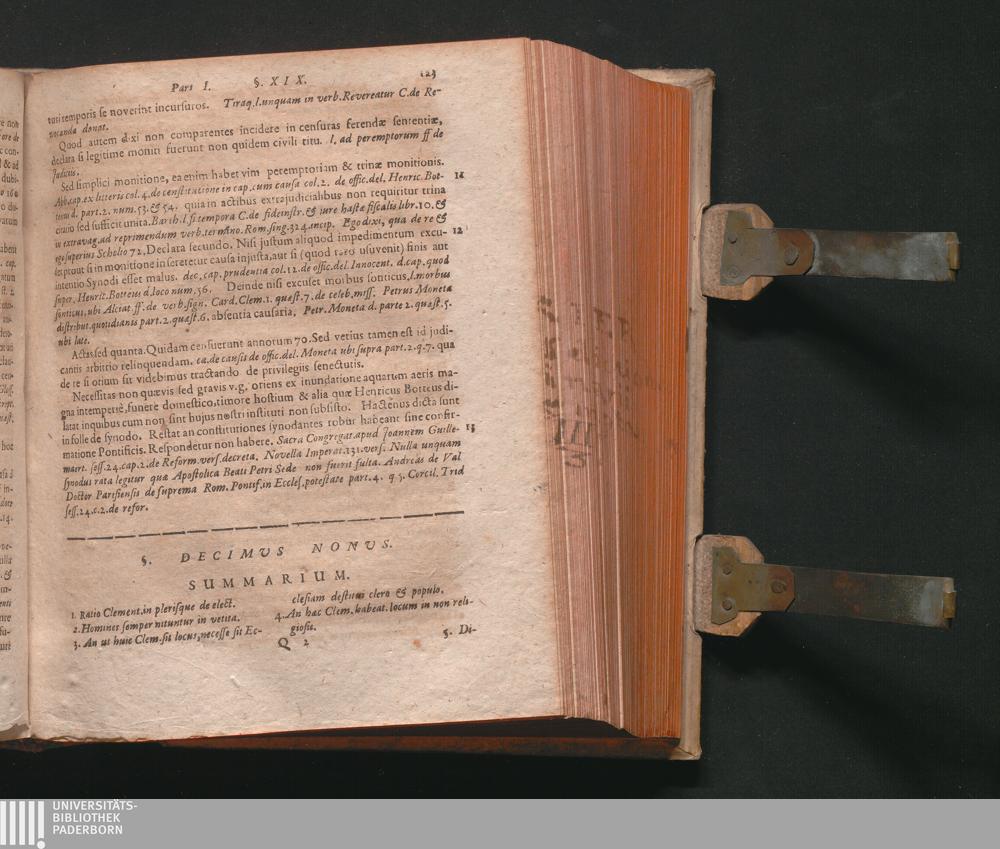 Pars I. §. XIX. 123
turi temporis se noverint incursuros. Tiraq. l. unquam in verb. Revereatur C. de Re-
vocanda donat.
Quod autem dixi non comparentes incidere in censuras ferendæ sententiæ,
declara si legitime moniti fuerunt non quidem civili titu. l. ad peremptorum ff de
Judiciis.
Sed simplici monitione, ea enim habet vim peremptoriam & trinæ monitionis.
Abb. cap. ex litteris col. 4. de constitutione in cap. cum causa col. 2. de offic. del. Henric. Bot- 11
teus d. part. 2. num. 53. & 54. quia in actibus extrajudicialibus non requiritur trina
citatio sed sufficit unita. Barth. l. si tempora C. de fideinstr. & iure hastæ fiscalis libr. 10. &
in extravag. ad reprimendum verb. termino. Rom. sing. 324. incip. Ego dixi, qua de re &
ego superius Scholio 72. Declara secundo. Nisi justum aliquod impedimentum excu- 12
set prout si in monitione insereretur causa injusta, aut si (quod raro usuvenit) finis aut
intentio Synodi esset malus. dec. cap. prudentia col. 12. de offic. del. Innocent. d. cap. quod
super. Henric. Botteus d. loco num. 56. Deinde nisi excuset morbus sonticus, l. morbus
sonticus, ubi Alciat ff. de verb. sign. Card. Clem. 1. quæst. 7. de celeb. miss. Petrus Moneta
distribut. quotidianis part. 2. quæst. 6. absentia causaria, Petr. Moneta d. parte 2. quæst. 5.
ubi late.
Actas sed quanta. Quidam censuerunt annorum 70. Sed verius tamen est id judi-
cantis arbitrio relinquendam. ca. de causis de offic. del. Moneta ubi supra part. 2. q. 7. qua
de re si otium sit videbimus tractando de privilegiis senectutis.
Necessitas non quævis sed gravis v.g. oriens ex inundatione aquarum aeris ma-
gna intemperiè, funere domestico, timore hostium & alia quæ Henricus Botteus di-
latat inquibus cum non sint hujus nostri instituti non subsisto. Hactenus dicta sunt
in folle de synodo. Restat an constitutiones synodantes robur habeant sine confir-
matione Pontificis. Respondetur non habere. Sacra Congregat. apud Joannem Guille- 13
mart. sess. 24. cap. 2. de Reform. vers. decreta. Novella Imperat. 131. vers. Nulla unquam
synodus rata legitur quæ Apostolica Beati Petri Sede non fuerit fulta. Andreas de Val
Doctor Parisiensis de suprema Rom. Pontif. in Eccles. potestate part. 4. q 5. Concil. Trid
sess. 24. c. 2. de refor.
§. DECIMVS NONVS.
SUMMARIUM.
1. Ratio Clement. in plerisque de elect.
2. Homines semper nituntur in vetita.
3. An ut huic Clem. sit locus, necesse sit Ec-
clesiam destitui clero & populo.
4. An hac Clem. habeat. locum in non reli-
giosis.
Q 2 5. Di-
UNIVERSITÄTS-
BIBLIOTHEK
PADERBORN